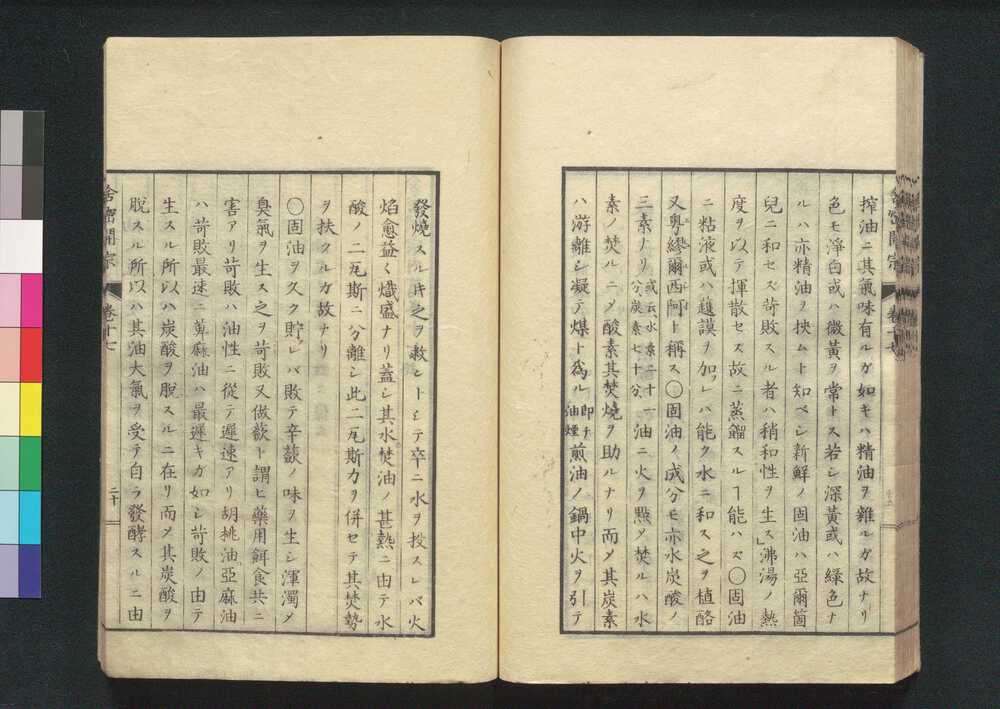 搾油ニ其氣味有ルガ如キハ精油ヲ雜ルガ故ナリ
色モ淨白或ハ微黃ヲ常トス若シ深黃或ハ綠色ナ
ルハ亦精油ヲ挾ムト知ベシ新鮮ノ固油ハ亞爾箇
兒ニ和セズ苛敗スル者ハ稍和性ヲ生ス」沸湯ノ熱
度ヲ以テ揮散セズ故ニ蒸餾スルヿ能ハズ〇固油
ニ粘液或ハ護謨ヲ加フレハ能ク水ニ和ス之ヲ植酪
又粤繆爾西阿ト稱ス〇固油ノ成分モ亦水炭酸ノ
三素ナリ 或云水素二十一分炭素七十九分 油ニ火ヲ點メ焚ルハ水
素ノ焚ルニメ酸素其焚燒ヲ助ルナリ而メ其炭素
ハ游離シ凝テ煤ト爲ル 卽チ油煙 煎油ノ鍋中火ヲ引テ
發燒スル片之ヲ救シトシテ卒ニ水ヲ投スレバ火
焰愈益〱熾盛ナリ蓋シ其水焚油ノ甚熱ニ由テ水
酸ノ二瓦斯ニ分離シ此二瓦斯力ヲ併セテ其焚勢
ヲ扶クルガ故ナリ
〇固油ヲ久ク貯フレバ敗テ辛蘞ノ味ヲ生シ渾濁メ
臭氣ヲ生ス之ヲ苛敗又做蘞ト謂ヒ藥用餌食共ニ
害アリ苛敗ハ油性ニ從テ遲速アリ胡桃油亞麻油
ハ苛敗最速ニ萆麻油ハ最遲キガ如シ苛敗ノ由テ
生スル所以ハ炭酸ヲ脫スルニ在リ而メ其炭酸ヲ
脫スル所以ハ其油大氣ヲ受テ自ラ發酵スルニ由
舍密開宗
卷十七
二十